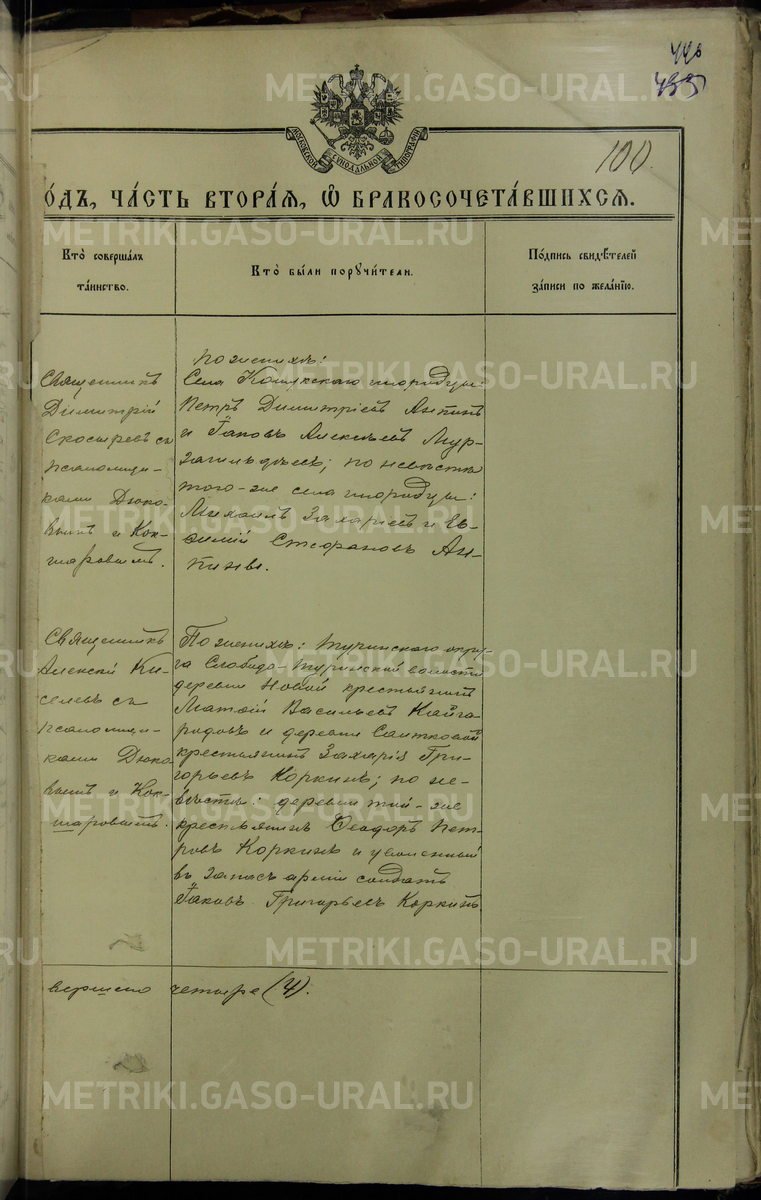 440
435
100.
МОСКОВСКОЙ СѴНОДАЛЬНОЙ ТИПОГРАФІИ
О́ДЪ, ЧА́СТЬ ВТОРА́Я, Ѽ БРАКОСОЧЕТА́ВШИХСЯ.
Кто̀ соверша́лъ
та́инство.
Кто̀ бы́ли порꙋчи́тели.
По́дпись свидѣ́телей
за́писи по жела́нїю.
Священникъ
Димитрій
Скосыревъ съ
псаломщи-
ками Дюко-
вымъ и Кок-
шаровымъ.
По женихѣ:
Села Кошукскаго инородцы:
Петръ Димитріевъ Анпинъ
и Іаковъ Алексѣевъ Мур-
загильдѣевъ; по невѣстѣ
того-же села инородцы:
Михаилъ Захаріевъ и Ев-
фимій Стефановъ Ан-
пины.
Священникъ
Алексій Ки-
селевъ съ
псаломщи-
ками Дюко-
вымъ и Кок-
шаровымъ.
По женихѣ: Туринскаго окру-
га Слободо-Туринской волости
деревни Новой крестьянинъ
Матѳій Васильевъ Кайга-
родовъ и деревни
крестьянинъ Захарія Гри-
горьевъ Коркинъ; по не-
вѣстѣ: деревни той-же
крестьянинъ Ѳеодоръ Пет-
ровъ Коркинъ и уволенный
въ запасъ арміи солдатъ
Іаковъ Григорьевъ Коркинъ.
вершено четыре (4).
METRIKI.GASO-URAL.RU